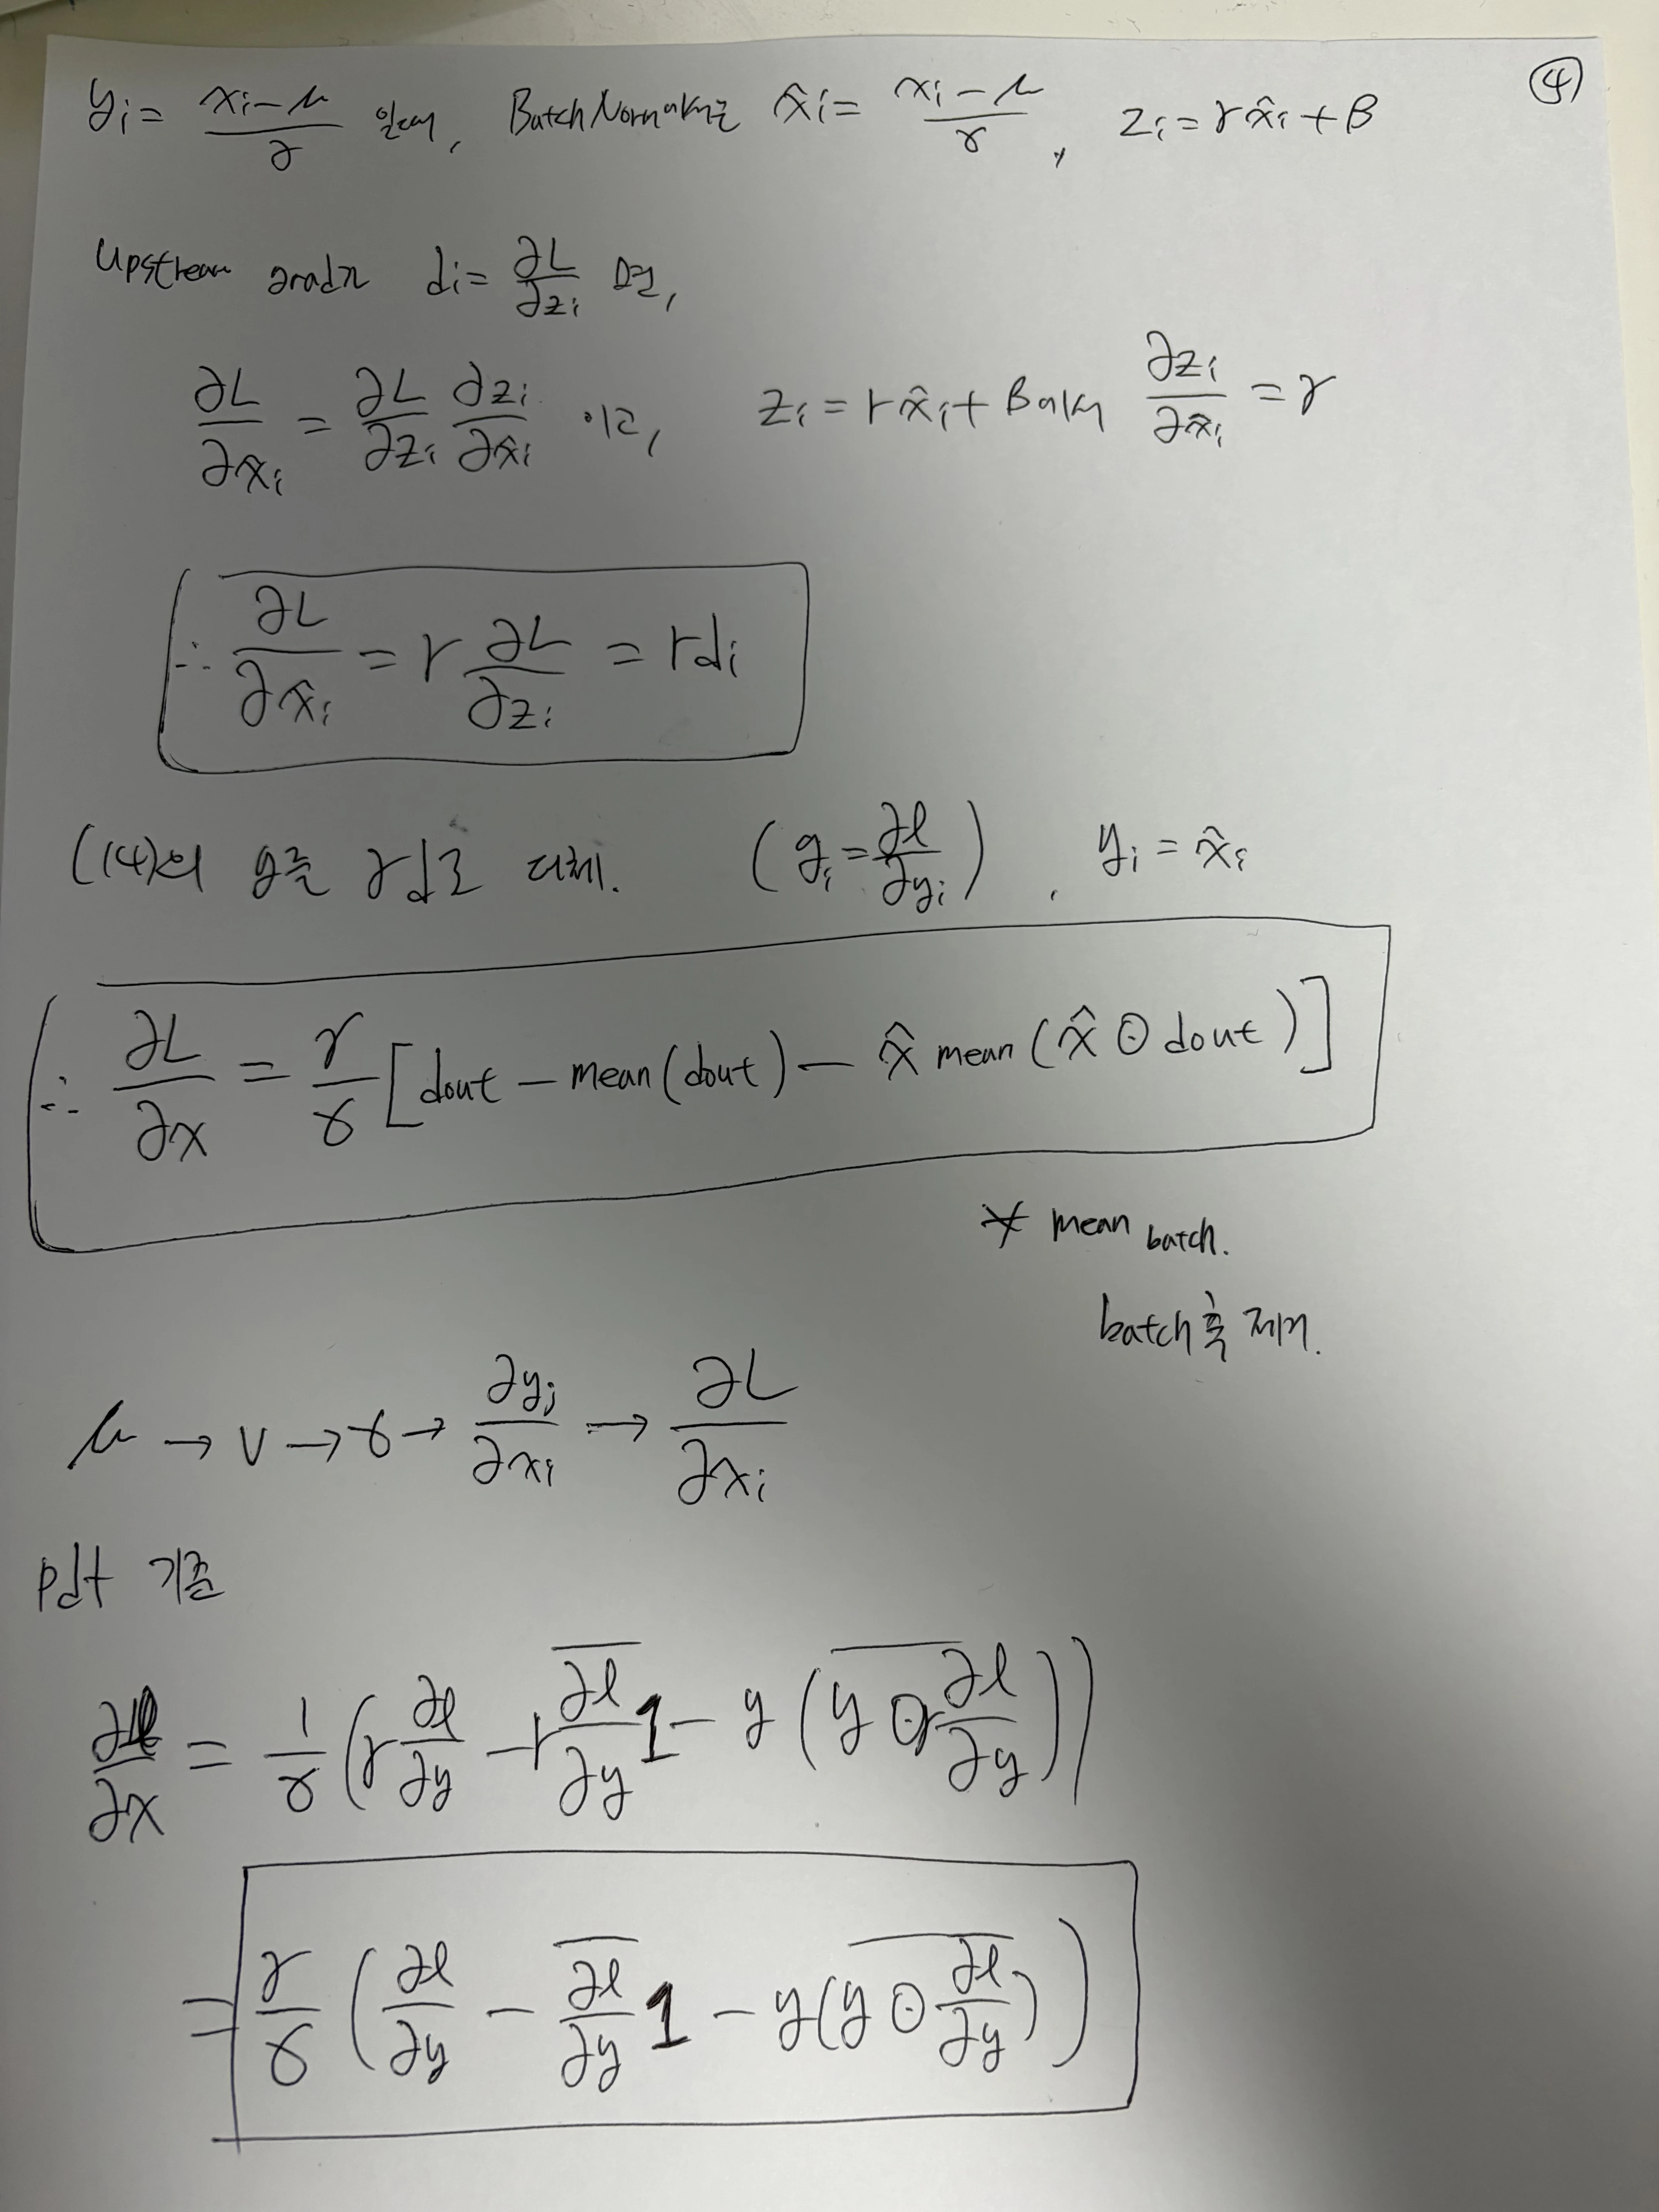 ④
yᵢ = (xᵢ - μ)/σ 일때, BatchNorm에서는 x̂ᵢ = (xᵢ - μ)/σ, zᵢ = γx̂ᵢ + β
upstream grad가 dᵢ = ∂L/∂zᵢ 면,
∂L/∂x̂ᵢ = ∂L/∂zᵢ ∂zᵢ/∂x̂ᵢ 이고, zᵢ = γx̂ᵢ + β에서 ∂zᵢ/∂x̂ᵢ = γ
∴ ∂L/∂x̂ᵢ = γ ∂L/∂zᵢ = γdᵢ
(14)의 g를 γd로 대체. (gᵢ = ∂ℓ/∂yᵢ), yᵢ = x̂ᵢ
∴ ∂L/∂x = γ/σ [dout - mean(dout) - x̂ mean(x̂ ⊙ dout)]
* mean batch.
batch축 제거.
μ → v → σ → ∂yⱼ/∂xᵢ → ∂L/∂xᵢ
pdf 기준
∂ℓ/∂x = 1/σ (γ ∂ℓ/∂y - γ \overline{∂ℓ/∂y} 1 - y \overline{(y ⊙ γ ∂ℓ/∂y)})
= γ/σ (∂ℓ/∂y - \overline{∂ℓ/∂y} 1 - y \overline{(y ⊙ ∂ℓ/∂y)})